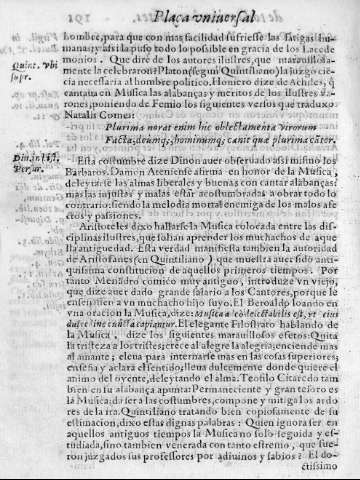 Plaça vniuersal
hombre, para que con mas facilidad sufriesse las fatigas humanas; y assi la puso todo lo possible en gracia de los Lacedemonios. Que diré de los autores ilustres, que marauillosamente
Quint. vbi supr.
la celebraron? Platon (segun Quintiliano) la juzgo ciencia necessaria al hombre politico. Homero dize de Achiles, q̃
cantaua en Musica las alabanças y meritos de los ilustres varones, poniendo de Femio los siguientes versos que traduxo
Natalis Comes:
Plurima norat enim hic oblectamenta virorum
Facta, deumq; hominumq; canit quæ plurima vates.
Esta costumbre dize Dinon auer obseruado assi mismo los
Barbaros. Damon Ateniense afirma en honor de la Musica,
deleytarse las almas liberales y buenas con cantar alabanças;
mas las injustas y malas estar acostumbradas a obrar todo lo
contrario; siendo la melodia mortal enemiga de los malos afectos y passiones.
Aristoteles dixo hallarse la Musica colocada entre las disciplinas ilustres, que solian aprender los muchachos de aquella
antiguedad. Esta verdad manifiesta tambien la autoridad
de Aristofanes (en Quintiliano) que muestra auer sido antiquissima constitucion de aquellos primeros tiempos. Por
tanto Menandro comico muy antiguo, introduze vn viejo,
que dize auer dado grande salario a los Cantores, porque le
enseñassen a vn muchacho hijo suyo. El Beroaldo loando en
vna oracion la Musica, dize: Musica oblectabilis est, et eius
dulcedine cuncta capiuntur. El elegante Filostrato hablando de
la Musica, dize los siguientes marauillosos efetos: Quita
la tristeza a los tristes; crece al alegre la alegria; enciende mas
al amante; eleua para internarse mas en las cosas superiores;
enseña y aclara el sentido; lleua dulcemente donde quiere el
animo del oyente, deleytando el alma. Teofilo Citaredo tambien
en su alabança apunta: Permaneciente y gran tesoro es
la Musica; da ser a las costumbres, compone y mitiga los ardores
de la ira. Quintiliano tratando bien copiosamente de su
estimacion, dixo estas dignas palabras: Quien ignora ser en
aquellos antiguos tiempos la Musica no solo seguida y estudiada,
sino tambien venerada con tanto estremo, que fueron
juzgados sus professores por adiuinos y sabios? El doctissimo